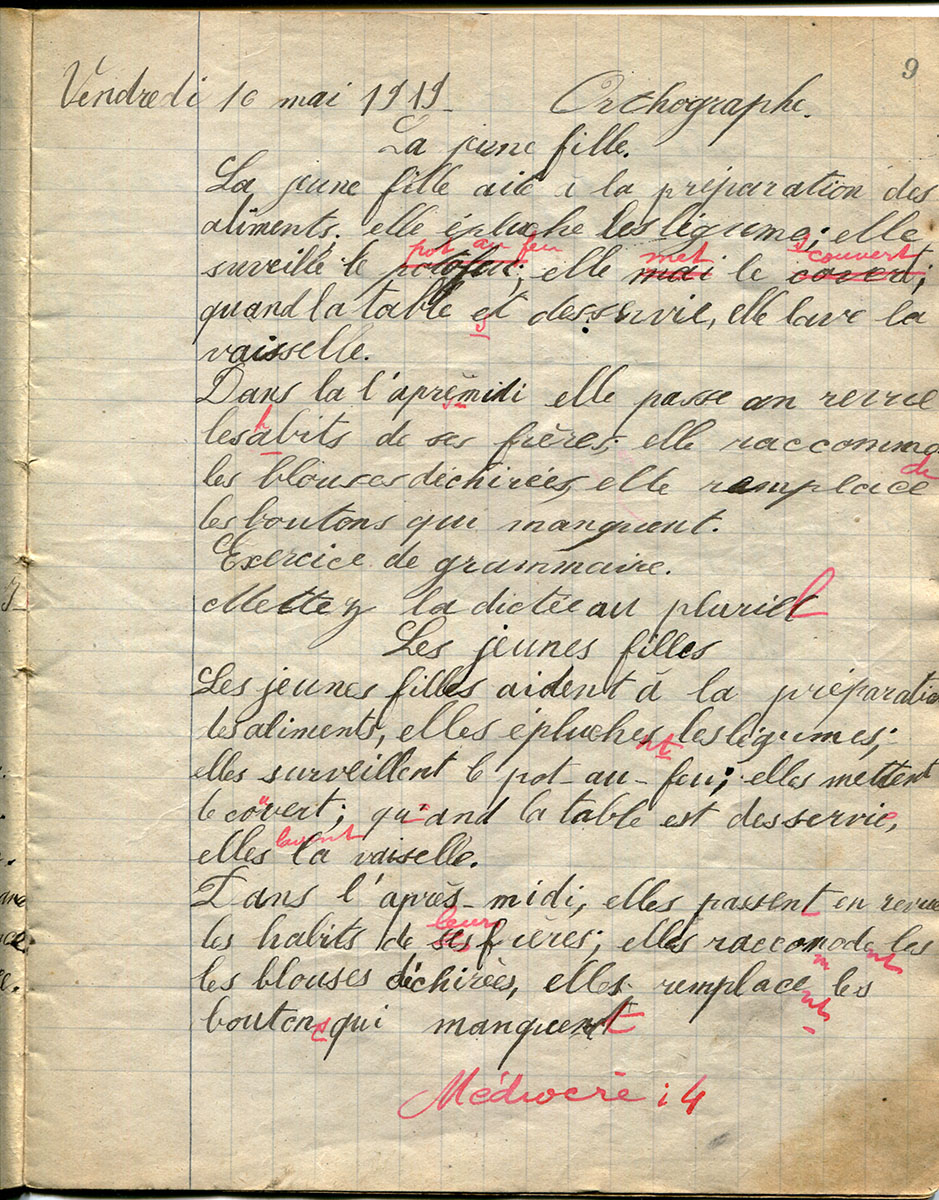 9
Vendredi 16 mai 1919_ Orthographe.
La jeune fille.
La jeune fille aide à la préparation des
aliments. elle épluche les légume s; elle
pot au feu met couvert
surveille le potofeu; elle mai le covert;
quand la table et desservie, elle lave la
s
vaisselle.
Dans la l'aprèmidi elle passe an revue
s-
h
les abits de ses frères; elle raccommo
de
les blouses déchirées, elle remplace
les boutons qui manquent.
Exercice de grammaire.
Mettez la dictée au pluriel
Les jeunes filles
Les jeunes filles aident à la préparatio
les aliments, elles épluches les légumes;
nt
elles surveillent le pot-au-feu; elles mettent
u
le covert; quand la table est desservie,
lavent
elles la vaiselle.
Dans l'après-midi, elles passent en revue
leurs
les habits de ses frères; elles raccomode les
m nt
les blouses déchirées, elles remplace les
nt
boutons qui manquent
Médiocre : 4